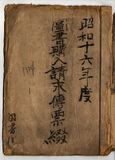 昭和十六年度
圖書購入請求傳票綴